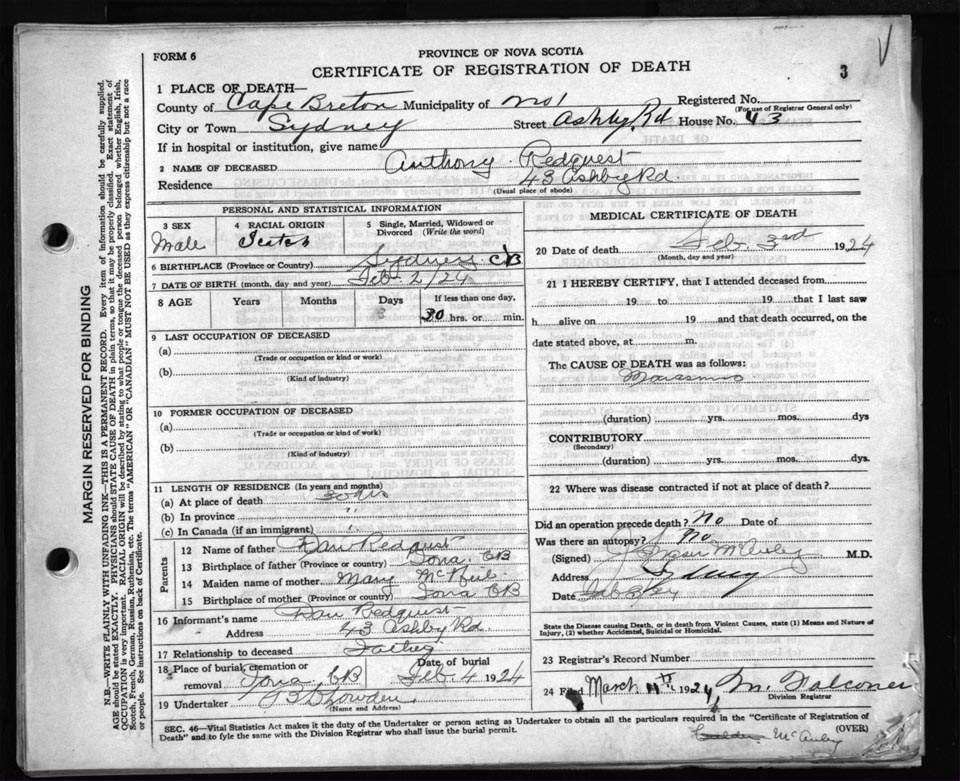 FORM 6
PROVINCE OF NOVA SCOTIA
CERTIFICATE OF REGISTRATION OF DEATH
3
1 PLACE OF DEATH—
County of Cape Breton Municipality of No 1 Registered No.
(For use of Registrar General only)
City or Town Sydney Street Ashby Rd House No. 43
If in hospital or institution, give name
2 NAME OF DECEASED Anthony Redquest
Residence 43 Ashby Rd.
(Usual place of abode)
PERSONAL AND STATISTICAL INFORMATION
3 SEX Male
4 RACIAL ORIGIN Scotch
5 Single, Married, Widowed or Divorced (Write the word)
6 BIRTHPLACE (Province or Country) Sydney CB
7 DATE OF BIRTH (month, day and year) Feb 2/24
8 AGE Years Months Days If less than one day,
30 hrs. or min.
9 LAST OCCUPATION OF DECEASED
(a)
(Trade or occupation or kind or work)
(b)
(Kind of industry)
10 FORMER OCCUPATION OF DECEASED
(a)
(Trade or occupation or kind of work)
(b)
(Kind of industry)
11 LENGTH OF RESIDENCE (In years and months)
(a) At place of death 30 hrs
(b) In province "
(c) In Canada (if an immigrant) "
Parents
12 Name of father Dan Redquest
13 Birthplace of father (Province or country) Iona CB
14 Maiden name of mother Mary McNeil
15 Birthplace of mother (Province or country) Iona CB
16 Informant's name Dan Redquest
Address 43 Ashby Rd.
17 Relationship to deceased Father
18 Place of burial, cremation or removal Iona CB Date of burial Feb. 4 1924
19 Undertaker
(Name and Address)
MEDICAL CERTIFICATE OF DEATH
20 Date of death Feb. 3rd 1924
(Month, day and year)
21 I HEREBY CERTIFY, that I attended deceased from
19 to 19 that I last saw
h alive on 19 and that death occurred, on the
date stated above, at m.
The CAUSE OF DEATH was as follows:
(duration) yrs. mos. dys
CONTRIBUTORY
(Secondary)
(duration) yrs. mos. dys.
22 Where was disease contracted if not at place of death?
Did an operation precede death? No Date of
Was there an autopsy? No
(Signed) McAuley M.D.
Address Sydney
Date
State the Disease causing Death, or in death from Violent Causes, state (1) Means and Nature of Injury, (2) whether Accidental, Suicidal or Homicidal.
23 Registrar's Record Number
24 Filed March 1924, M. Falconer
Division Registrar
SEC. 46—Vital Statistics Act makes it the duty of the Undertaker or person acting as Undertaker to obtain all the particulars required in the "Certificate of Registration of
Death" and to fyle the same with the Division Registrar who shall issue the burial permit.
(OVER)
McAuley
MARGIN RESERVED FOR BINDING
N.B.—WRITE PLAINLY WITH UNFADING INK—THIS IS A PERMANENT RECORD. Every item of information should be carefully supplied.
AGE should be stated EXACTLY. PHYSICIANS should STATE CAUSE OF DEATH in plain terms, so that it may be properly classified. Exact statement of
OCCUPATION is very important. RACIAL ORIGIN will be described by stating to what people or tongue the deceased person belonged whether English, Irish,
Scotch, French, German, Russian, Ruthenian, etc. The terms "AMERICAN" OR "CANADIAN" MUST NOT BE USED as they express citizenship but not a race
or people. See instructions on back of Certificate.